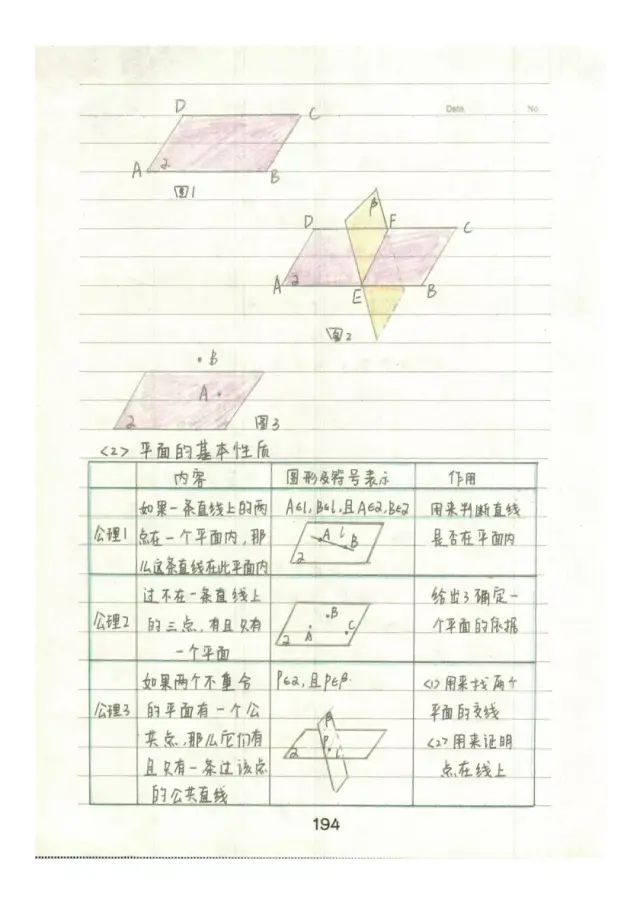 Date. No.
D C
A 2 B
图1
β
D F C
A 2 E B
图2
B
A
2 图3
<2> 平面的基本性质
内容 图形及符号表示 作用
公理1
如果一条直线上的两
点在一个平面内,那
么这条直线在此平面内
A∈l,B∈l,且A∈2,B∈2
A l B
2
用来判断直线
是否在平面内
公理2
过不在一条直线上
的三点,有且只有
一个平面
B
A C
2
给出了确定一
个平面的依据
公理3
如果两个不重合
的平面有一个公
共点,那么它们有
且只有一条过该点
的公共直线
P∈2,且P∈β.
β
P l
2
<1>用来找两个
平面的交线
<2>用来证明
点在线上
194